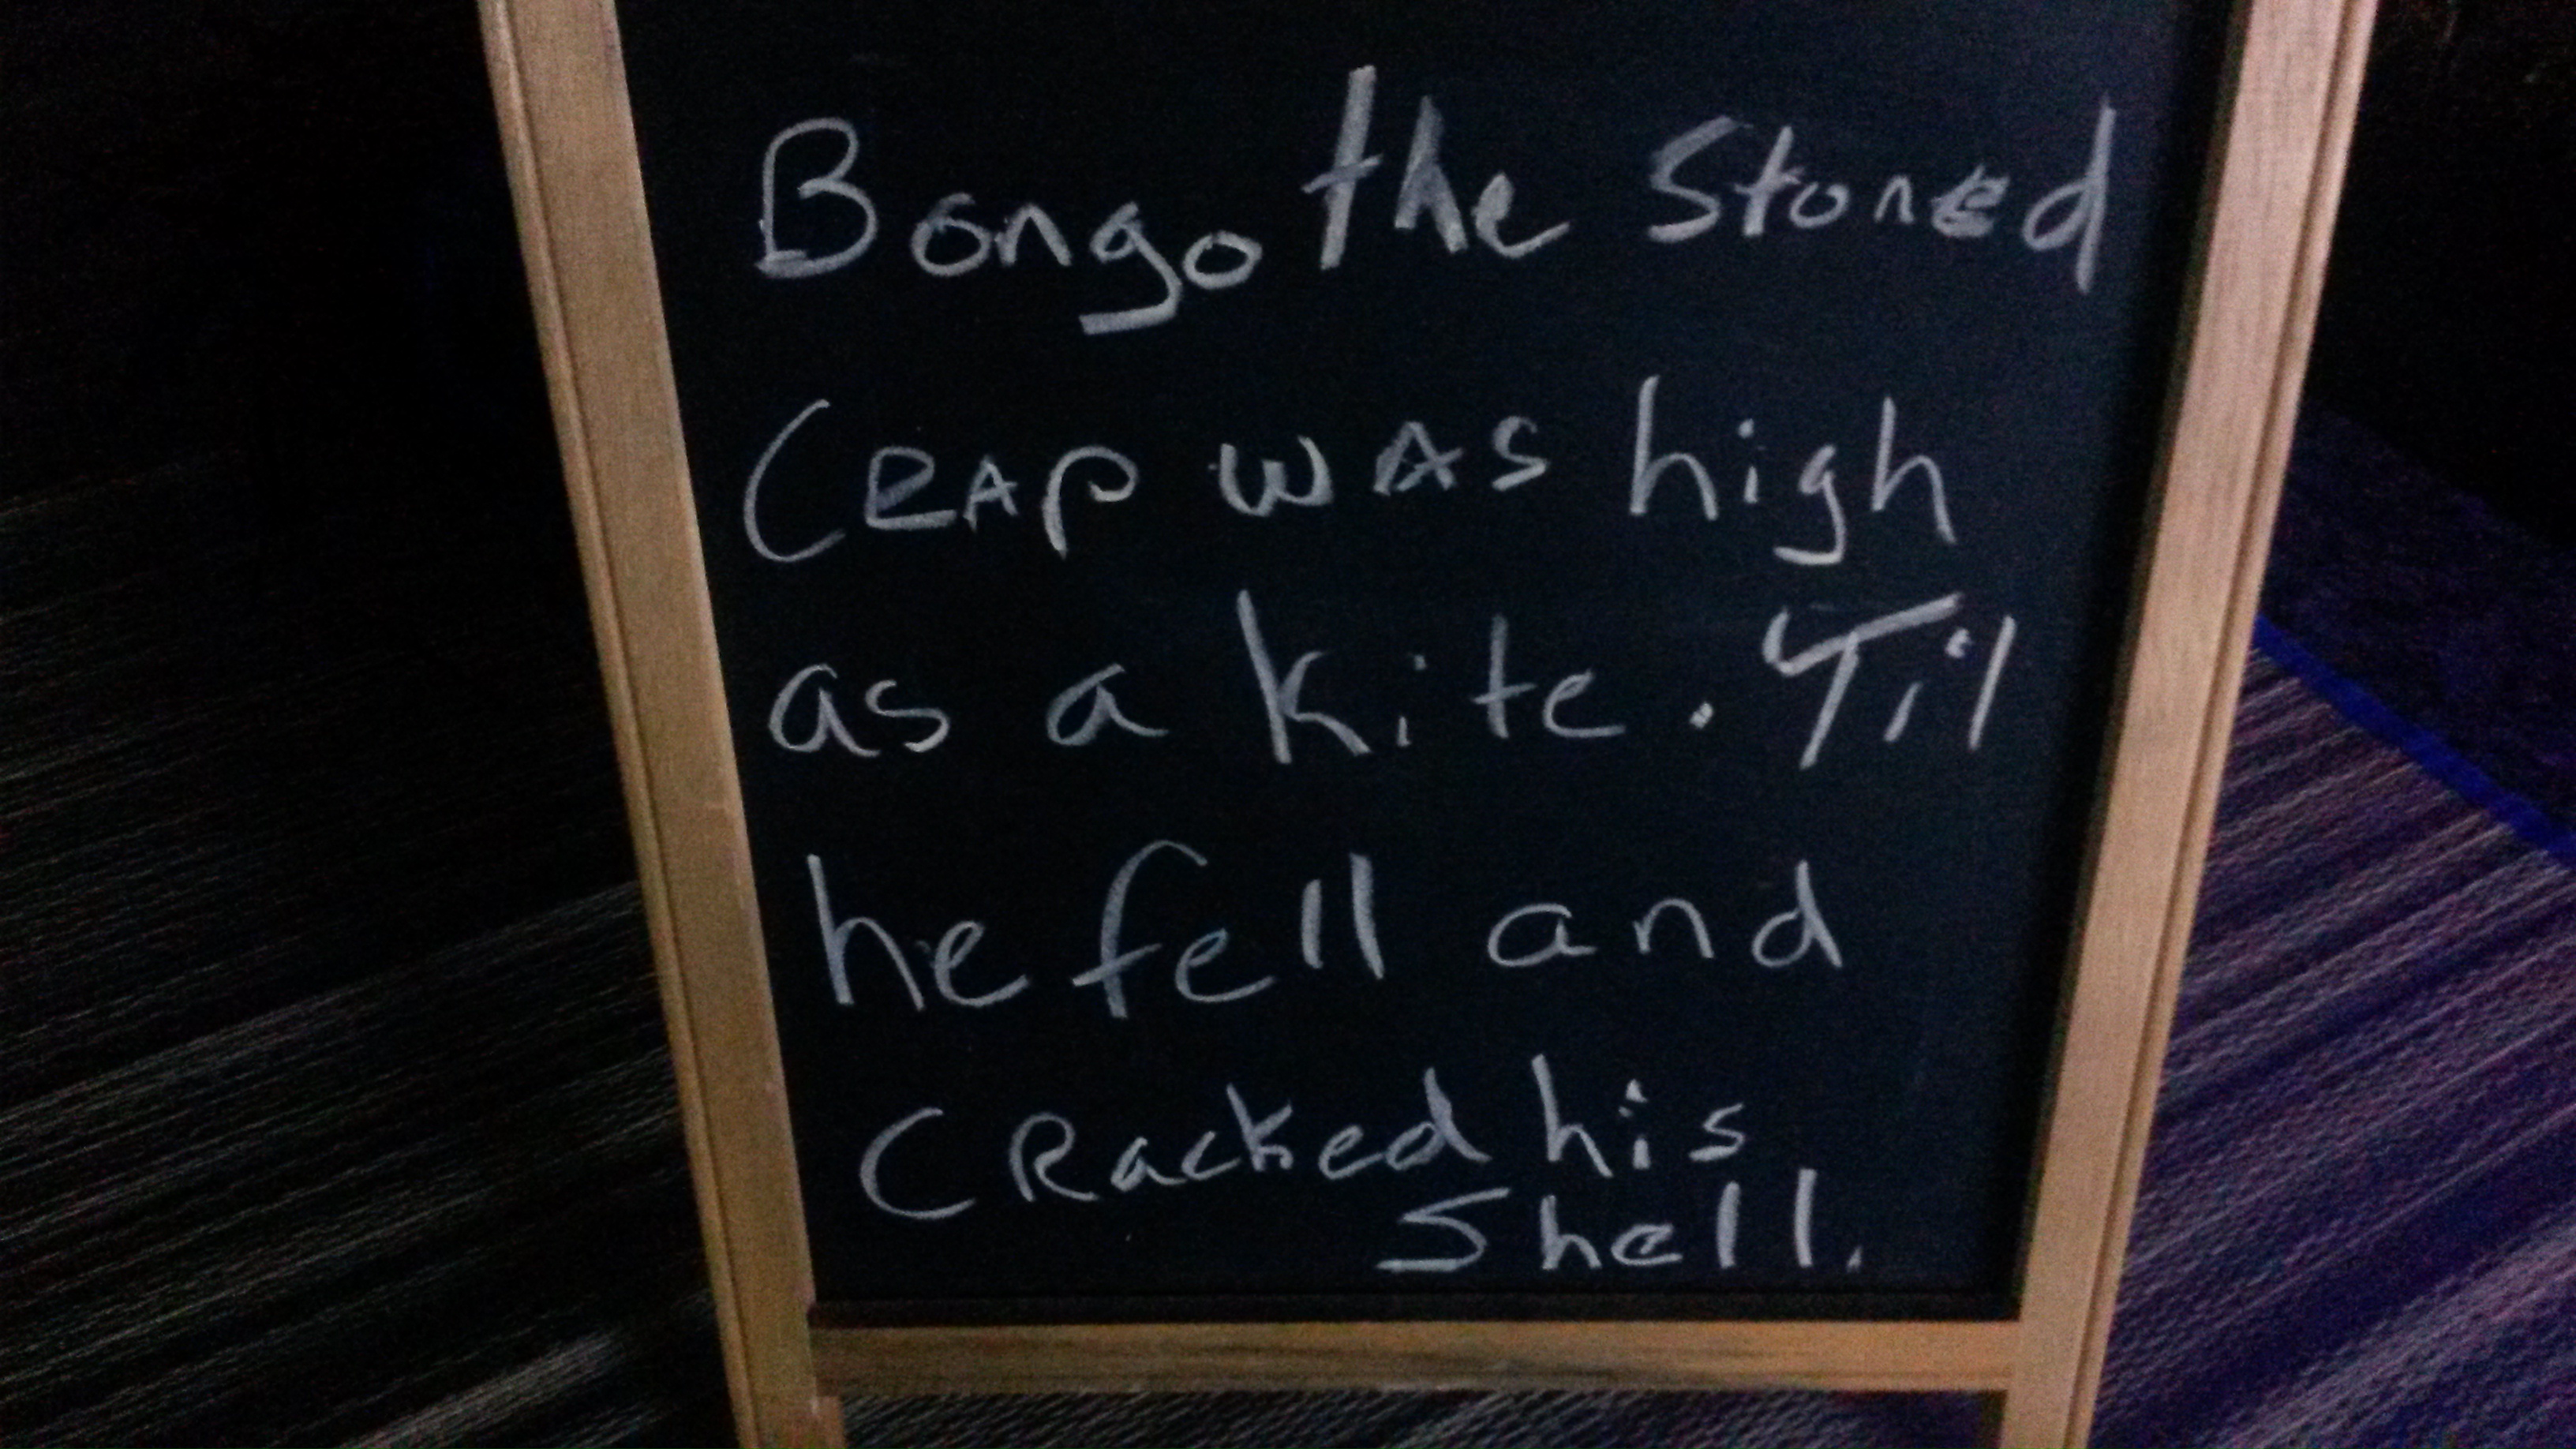 Bongo the Stoned
CRAP was high
as a kite. Til
he fell and
CRacked his
Shell.